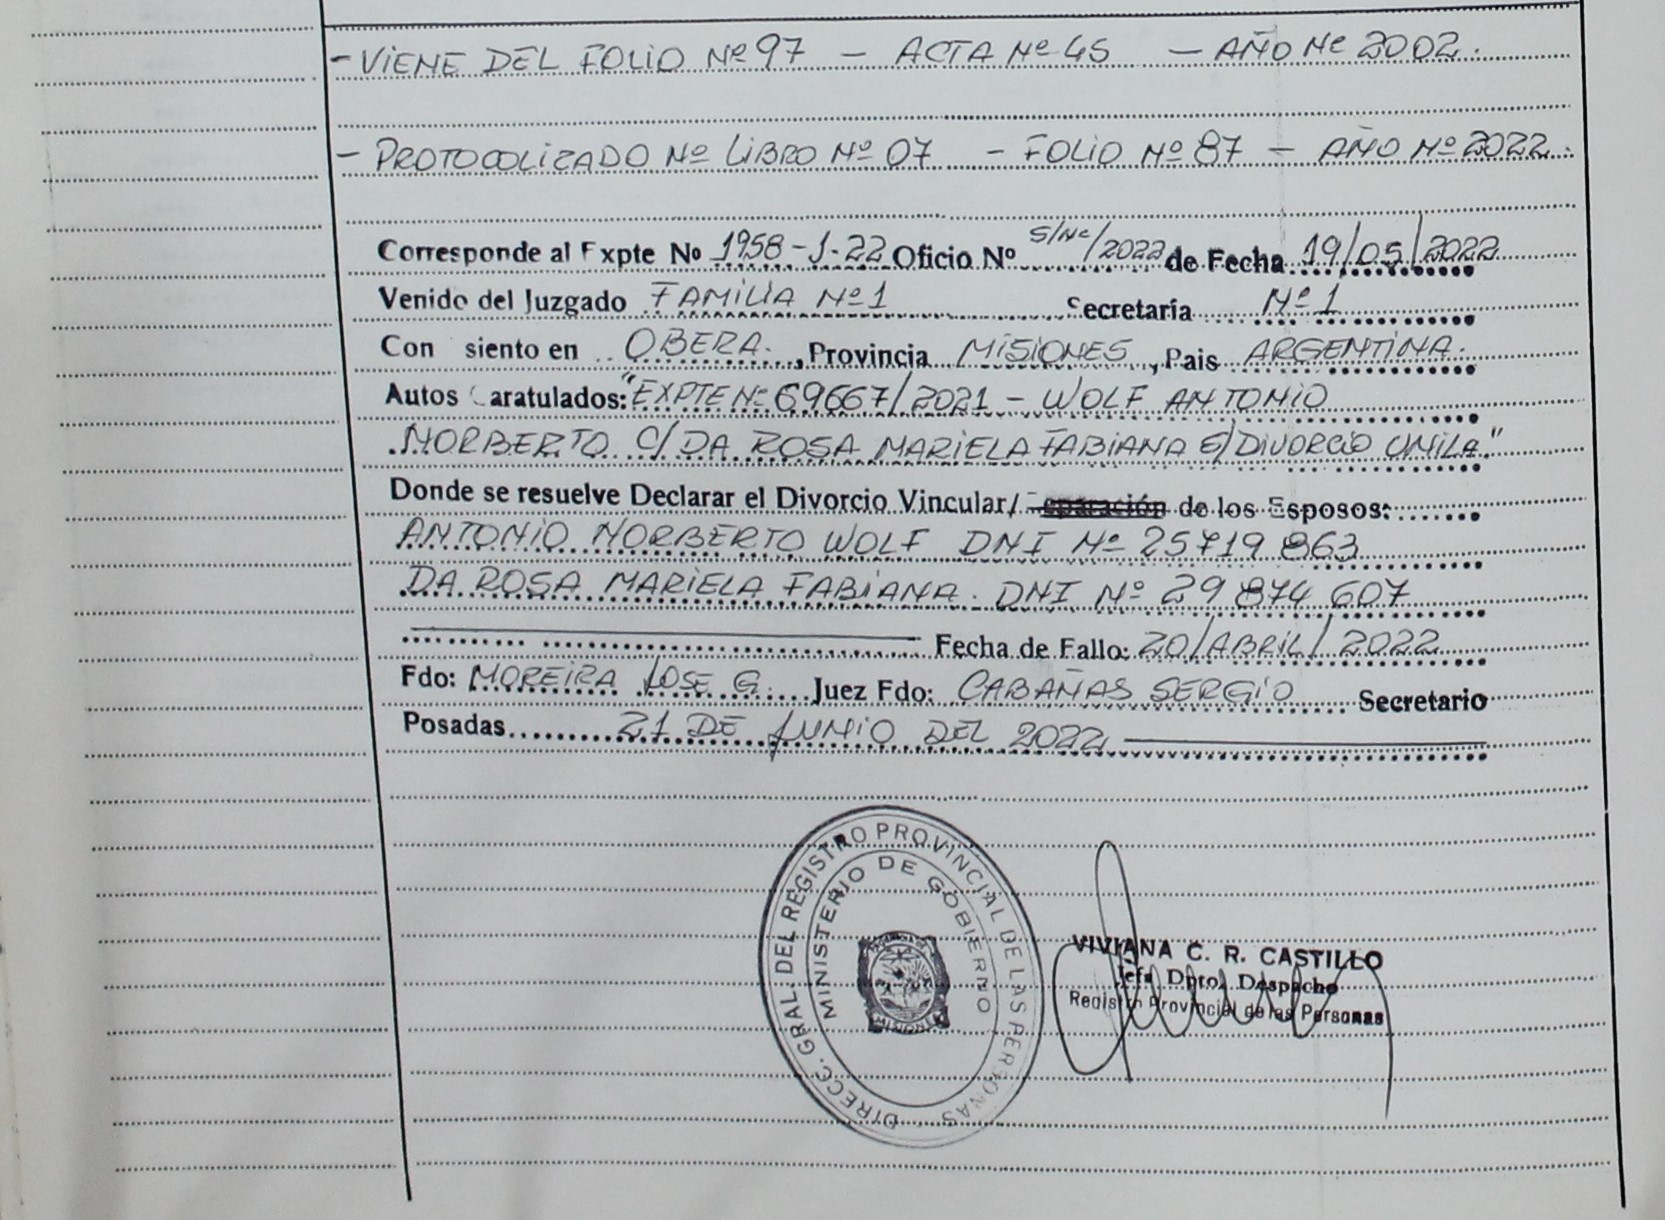 - VIENE DEL FOLIO Nº 97 - ACTA Nº 45 - AÑO Nº 2002.
- PROTOCOLIZADO Nº LIBRO Nº 07 - FOLIO Nº 87 - AÑO Nº 2022.
Corresponde al Expte No 1958-J-22 Oficio Nº S/Nº/2022 de Fecha 19/05/2022
Venido del Juzgado FAMILIA Nº 1 Secretaría Nº 1
Con siento en OBERA., Provincia MISIONES, Pais ARGENTINA.
Autos Caratulados: "EXPTE Nº 69667/2021 - WOLF ANTONIO
NORBERTO C/ DA ROSA MARIELA FABIANA S/ DIVORCIO UNILA."
Donde se resuelve Declarar el Divorcio Vincular/ Separación de los Esposos:
ANTONIO NORBERTO WOLF DNI Nº 25719 863
DA ROSA MARIELA FABIANA. DNI Nº 29 874 607
Fecha de Fallo: 20/ABRIL/2022
Fdo: MOREIRA JOSE G. Juez Fdo: CABAÑAS SERGIO Secretario
Posadas 21 DE JUNIO DEL 2022
DIRECC. GRAL. DEL REGISTRO PROVINCIAL DE LAS PERSONAS
MINISTERIO DE GOBIERNO
VIVIANA C. R. CASTILLO
Jefa Dpto. Despacho
Registro Provincial de las Personas